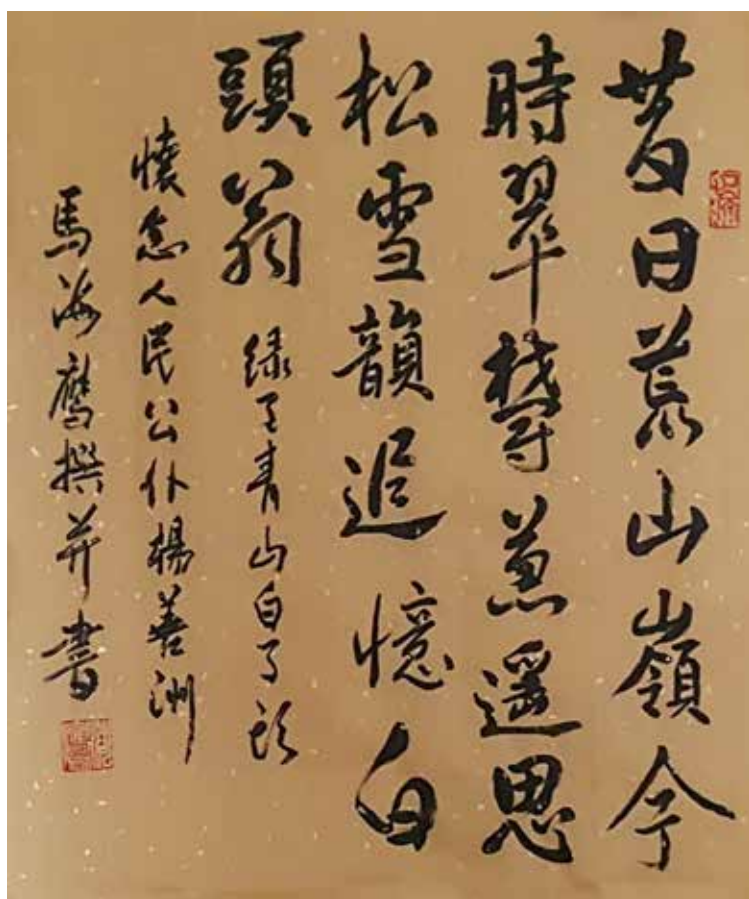 昔日荒山嶺今
時翠欝葱遥思
松雪韻追憶白
頭翁
绿了青山白了头
懷念人民公仆楊善洲
馬海鹰撰并書